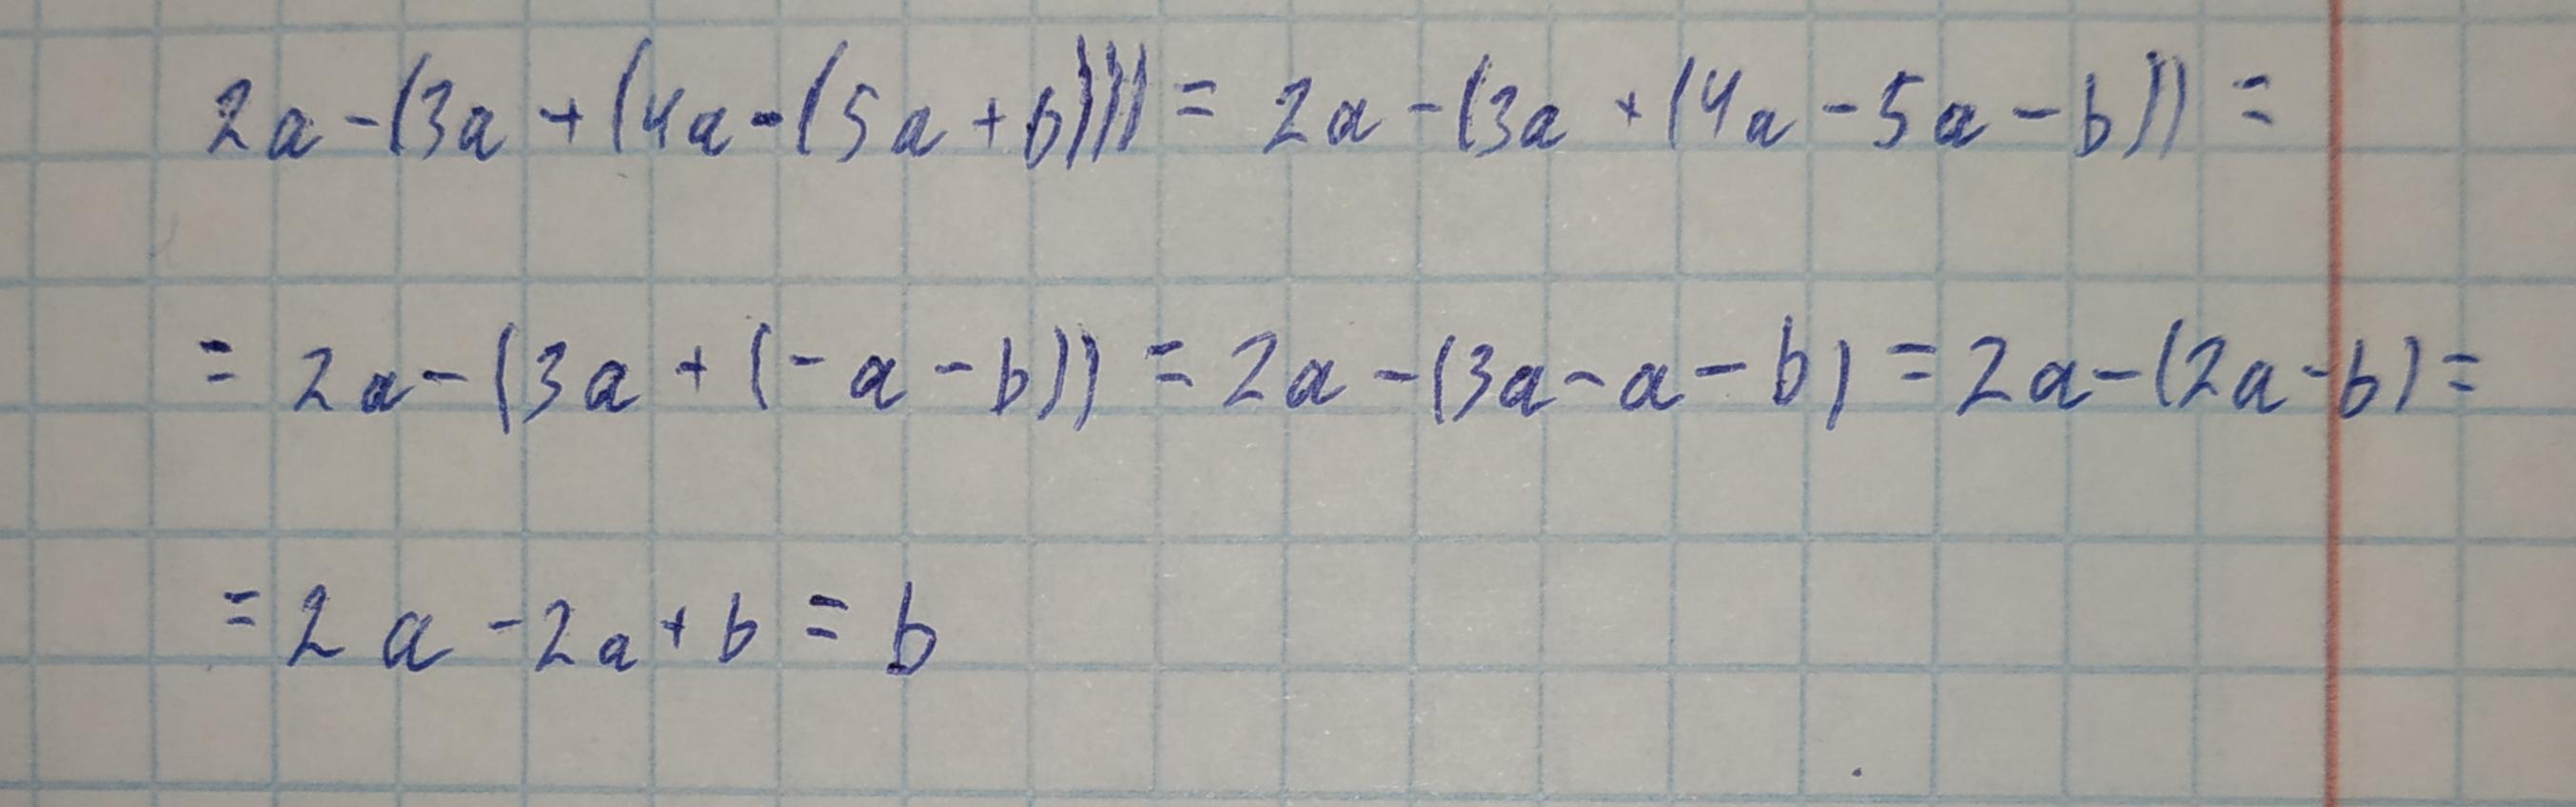 2a-(3a+(4a-(5a+b)))=2a-(3a+(4a-5a-b))=
=2a-(3a+(-a-b))=2a-(3a-a-b)=2a-(2a-b)=
=2a-2a+b=b